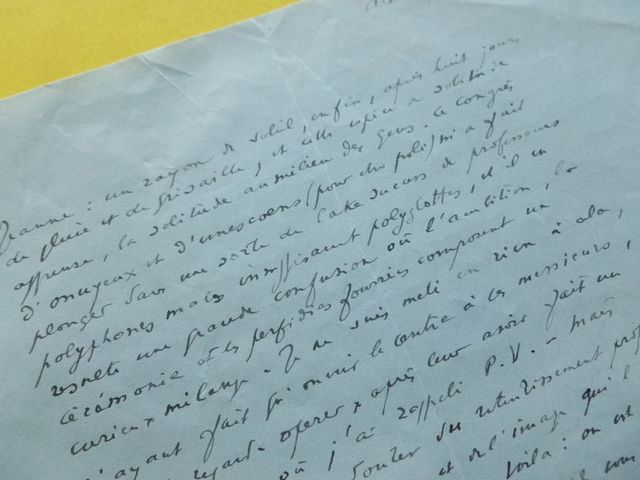 Jeanne : un rayon de soleil, enfin, après huit jours
de pluie et de grisaille, et cette espèce de solitude
affreuse, la solitude au milieu des gens. Ce congrès
d'onuyeux et d'unescoens (pour être poli) m'a fait
plonger dans une sorte de de professeurs
polyphones mais insuffisamment polyglottes, et il en
résulte une grande confusion où l'ambition, la
cérémonie et les perfidies fourrées composent un
curieux mélange. Je ne suis mêlé en rien à cela,
n'ayant fait qu'ouvrir le centre à ces messieurs,
regarde opérer après leur avoir fait un
où j'ai rappelé P.V. - mais
douter du retentissement
et de l'image qu'il
voilà : on est